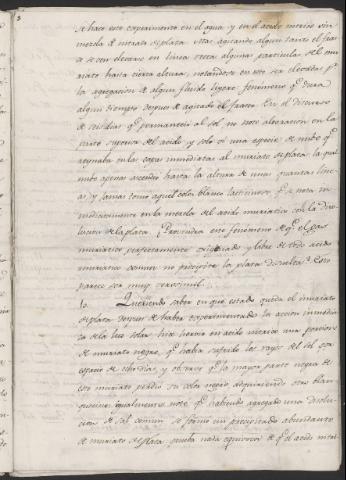 Se hace este experimento en el agua, y en el acido nitrico sin
mezcla de nitrato de plata. Mas agitando algun tanto el fras-
co se ven elevarse en linea recta algunas particulas del mu-
riato hasta cierta altura, notandose en esto ser elevadas pr
la agregacion de algun fluido ligero fenomeno qe dura
algun tiempo despues de agitado el frasco. En el discurso
de seis dias qe permanecio al sol no note alteracion en la
parte superior del acido y solo vi una especie de nube qe
reynaba en las capas inmediatas al muriato de plata: la qual
nube apenas ascendio hasta la altura de unas quantas line-
as, y jamas tomo aquel color blanco lactinoso qe se nota in-
mediatamente en la mezcla del acido muriatico con la diso-
lucion de la plata. ¿Provendra este fenomeno de qe el gas
muriatico perfectamente oxigenado y libre de todo acido
muriatico comun no precipita la plata disuelta? Esto
parece ser muy verosimil.
10. Queriendo saber en que estado queda el muriato
de plata despues de haber experimentado la accion inmedia-
ta de la luz solar hice hervir en acido nitrico una porcion
de muriato negro, qe habia sufrido los rayos del sol por
espacio de ocho dias, y observe qe la mayor parte negra de
este muriato perdio su color negro adquiriendo otro blan-
quecino: igualmente note qe habiendo agregado una disolu-
cion de sal comun se formo un precipitado abundante
de muriato de plata, prueba nada equivoca de qe el acido nitri-